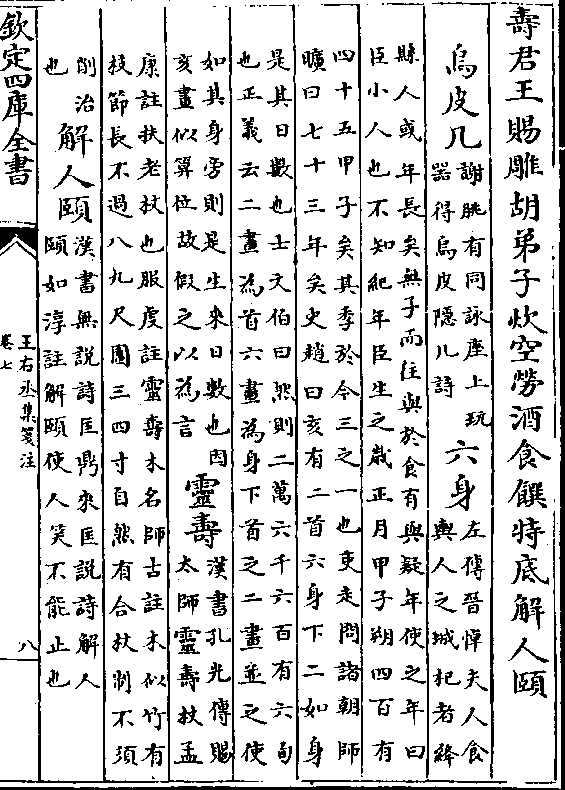 壽君王賜雕胡弟子炊空勞酒食饌特底解人頤
烏皮几
謝朓有同詠座上玩
器得烏皮隱几詩
六身
左傳晉悼夫人食
輿人之城杞者絳
縣人或年長矣無子而往與於食有與疑年使之年曰
臣小人也不知紀年臣生之歲正月甲子朔四百有
四十五甲子矣其季於今三之一也吏走問諸朝師
曠曰七十三年矣史趙曰亥有二首六身下二如身
是其日數也士文伯曰然則二萬六千六百有六旬
也正義云二畫為首六畫為身下首之二畫並之使
如其身旁則是生來日數也因
亥畫似算位故假之以為言
靈壽
漢書孔光傳賜
太師靈壽杖孟
康註扶老杖也服虔註靈壽木名師古註木似竹有
枝節長不過八九尺圍三四寸自然有合杖制不須
削治
也
解人頤
漢書無說詩匡鼎來匡說詩解人
頤如淳註解頤使人笑不能止也
欽定四庫全書
王右丞集箋注
卷七
八